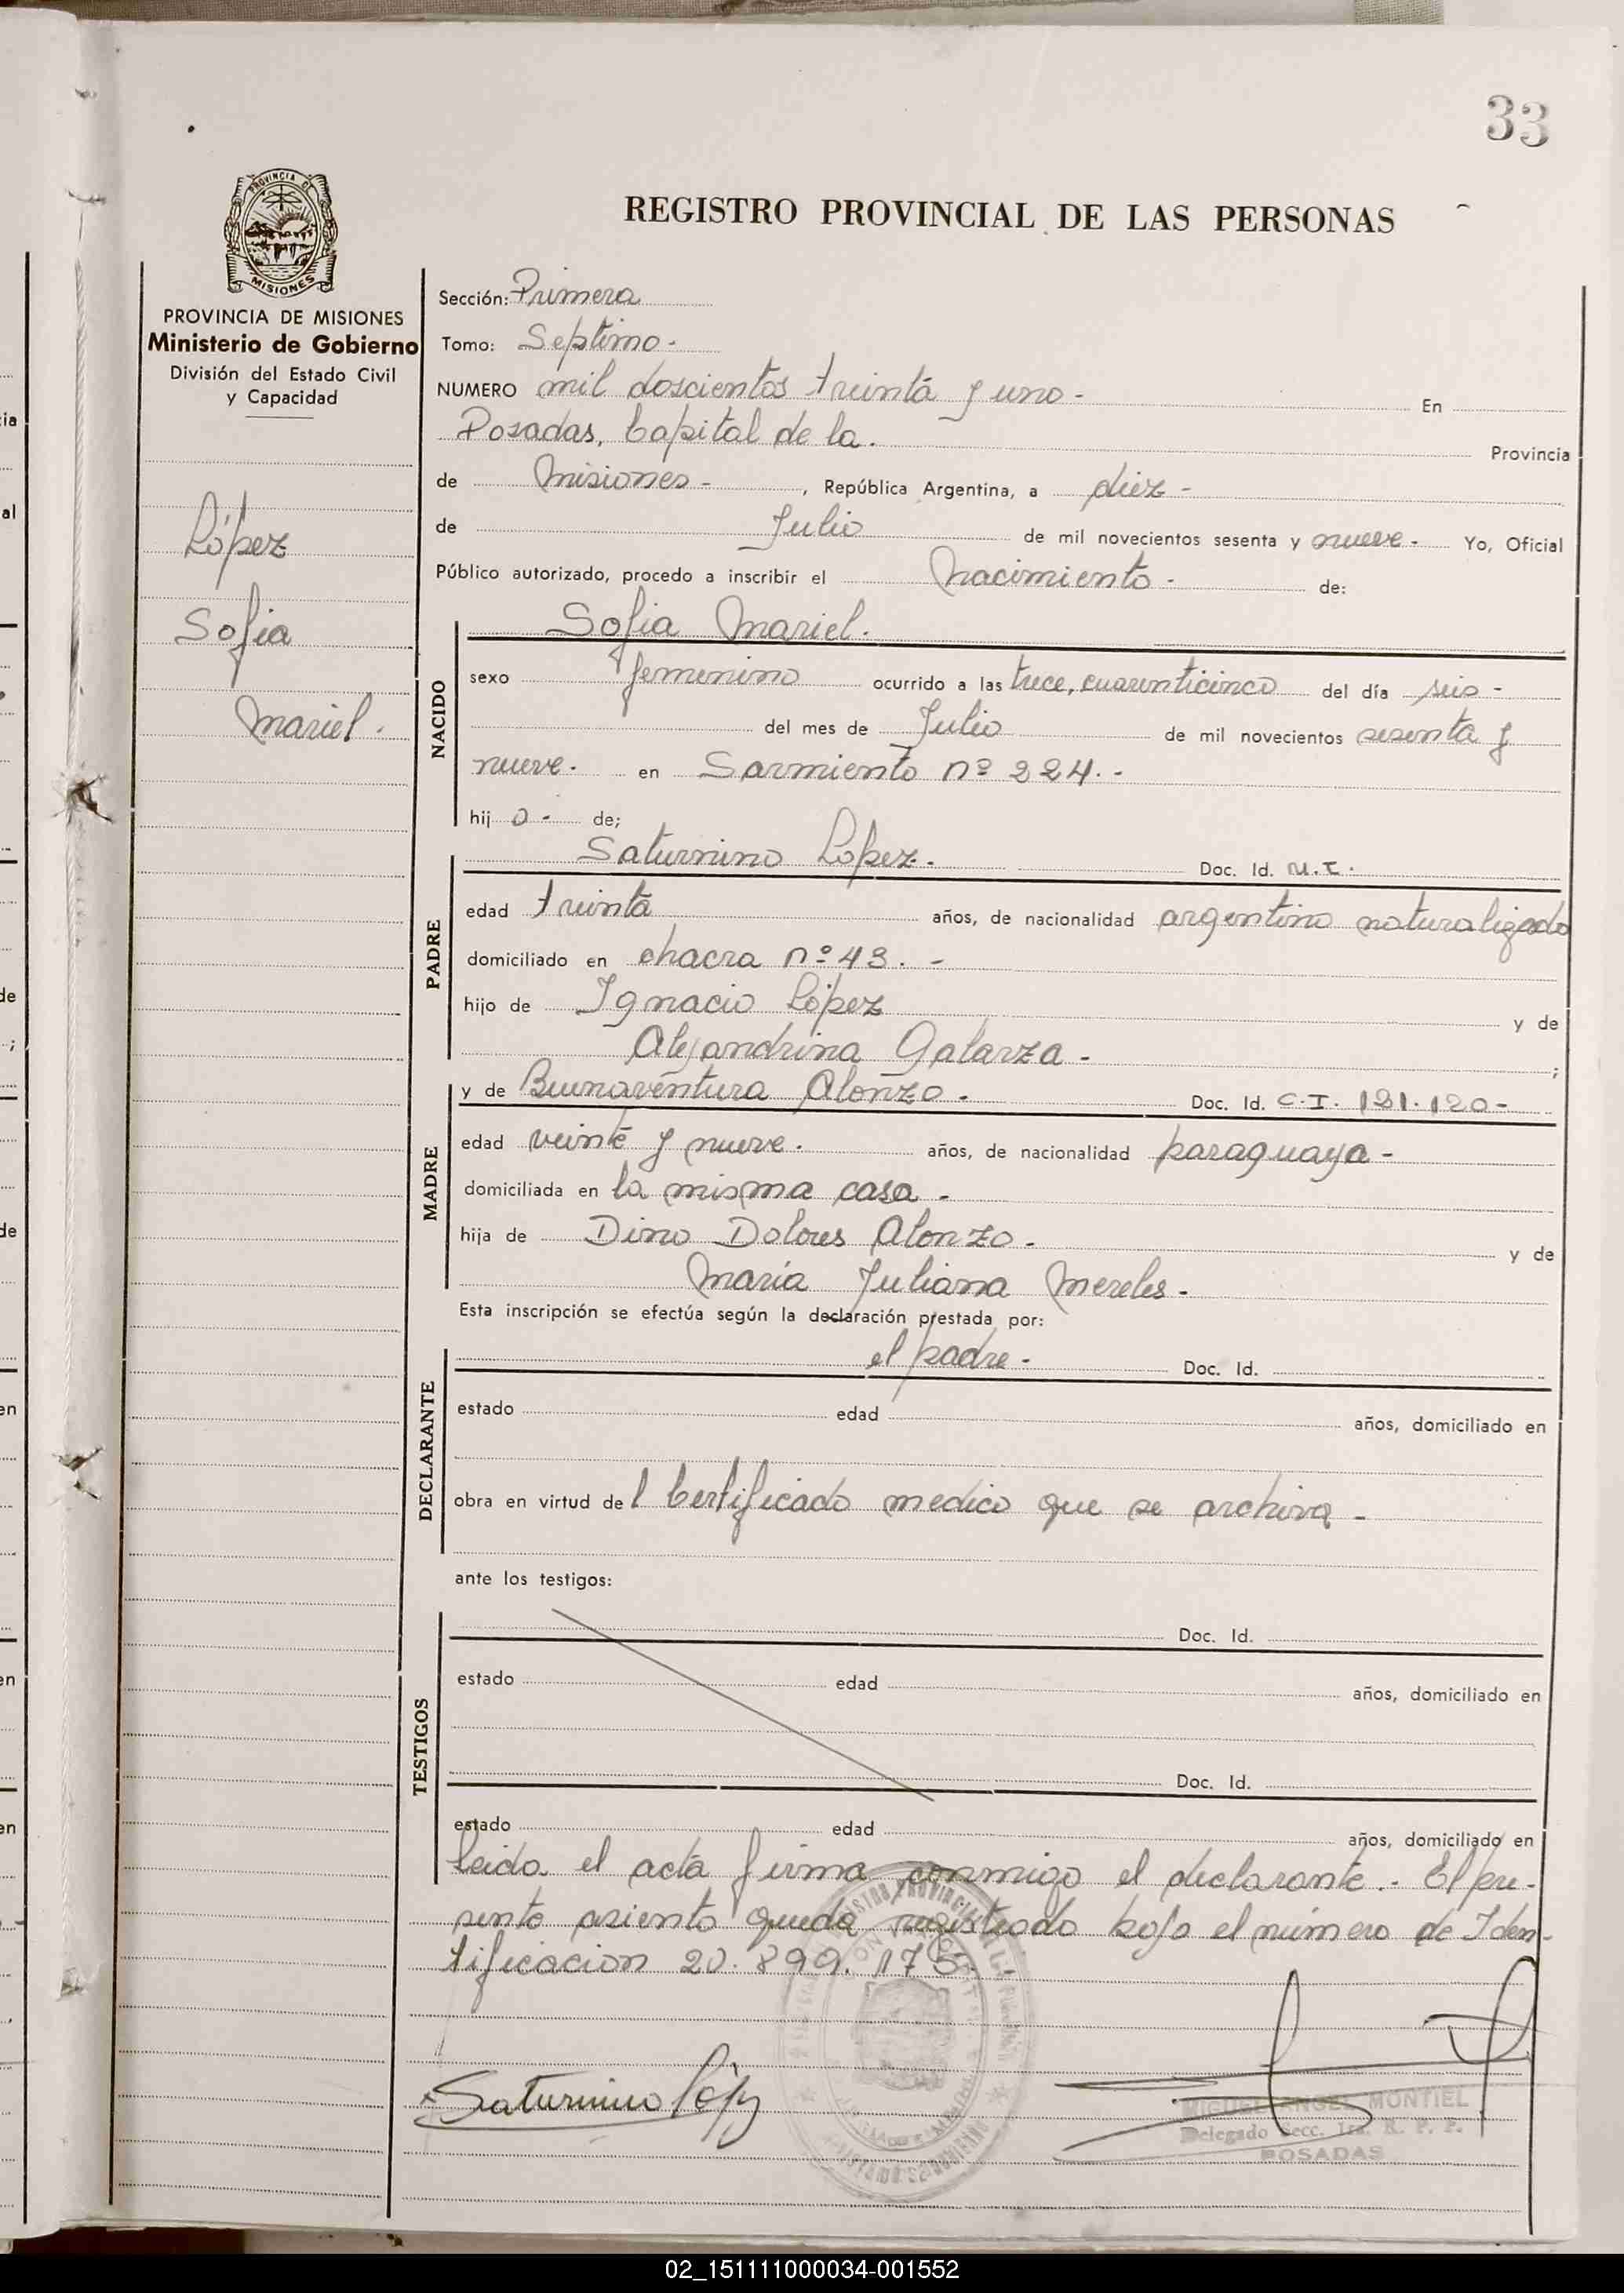 33
PROVINCIA DE
MISIONES
REGISTRO PROVINCIAL DE LAS PERSONAS
PROVINCIA DE MISIONES
Ministerio de Gobierno
División del Estado Civil
y Capacidad
López
Sofia
Mariel.
Sección: Primera
Tomo: Septimo-
NUMERO mil doscientos treinta y uno- En
Posadas, Capital de la. Provincia
de Misiones-, República Argentina, a diez-
de Julio de mil novecientos sesenta y nueve- Yo, Oficial
Público autorizado, procedo a inscribir el Nacimiento- de:
Sofia Mariel.
NACIDO
sexo femenino ocurrido a las trece, cuarenticinco del día seis-
del mes de Julio de mil novecientos sesenta y
nueve. en Sarmiento nº 224.-
hij o- de;
Saturnino López- Doc. Id.
PADRE
edad treinta años, de nacionalidad argentino naturalizado
domiciliado en chacra nº 43.-
hijo de Ignacio López y de
Alejandrina Galarza- ;
y de Buenaventura Alonzo- Doc. Id. C.I. 181.120-
MADRE
edad veinte y nueve. años, de nacionalidad paraguaya-
domiciliada en la misma casa-
hija de Dino Dolores Alonzo- y de
María Juliana Mereles-
Esta inscripción se efectúa según la declaración prestada por:
el padre- Doc. Id.
DECLARANTE
estado edad años, domiciliado en
obra en virtud del Certificado medico que se archiva-
ante los testigos:
Doc. Id.
TESTIGOS
estado edad años, domiciliado en
Doc. Id.
estado edad años, domiciliado en
Leida el acta firma conmigo el declarante.- El pre-
sente asiento queda registrado bajo el número de Iden-
tificacion 20.899.175-
Saturnino López
MIGUEL ANGEL MONTIEL
Delegado Secc. 1ra. R. P. P.
POSADAS
02_151111000034-001552